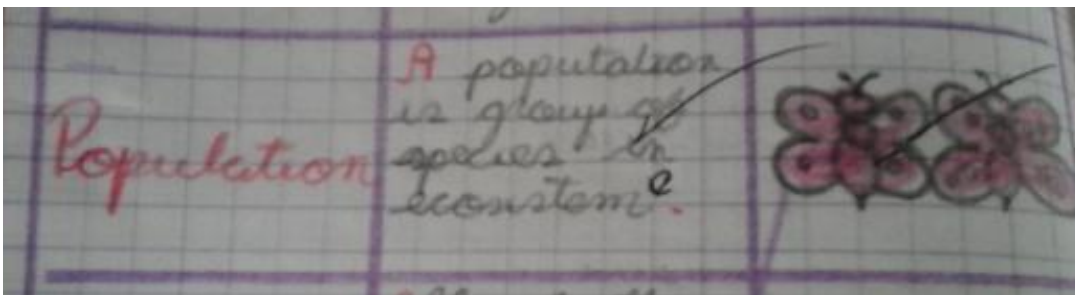 Population
A population
is group of
species in
econstem e.